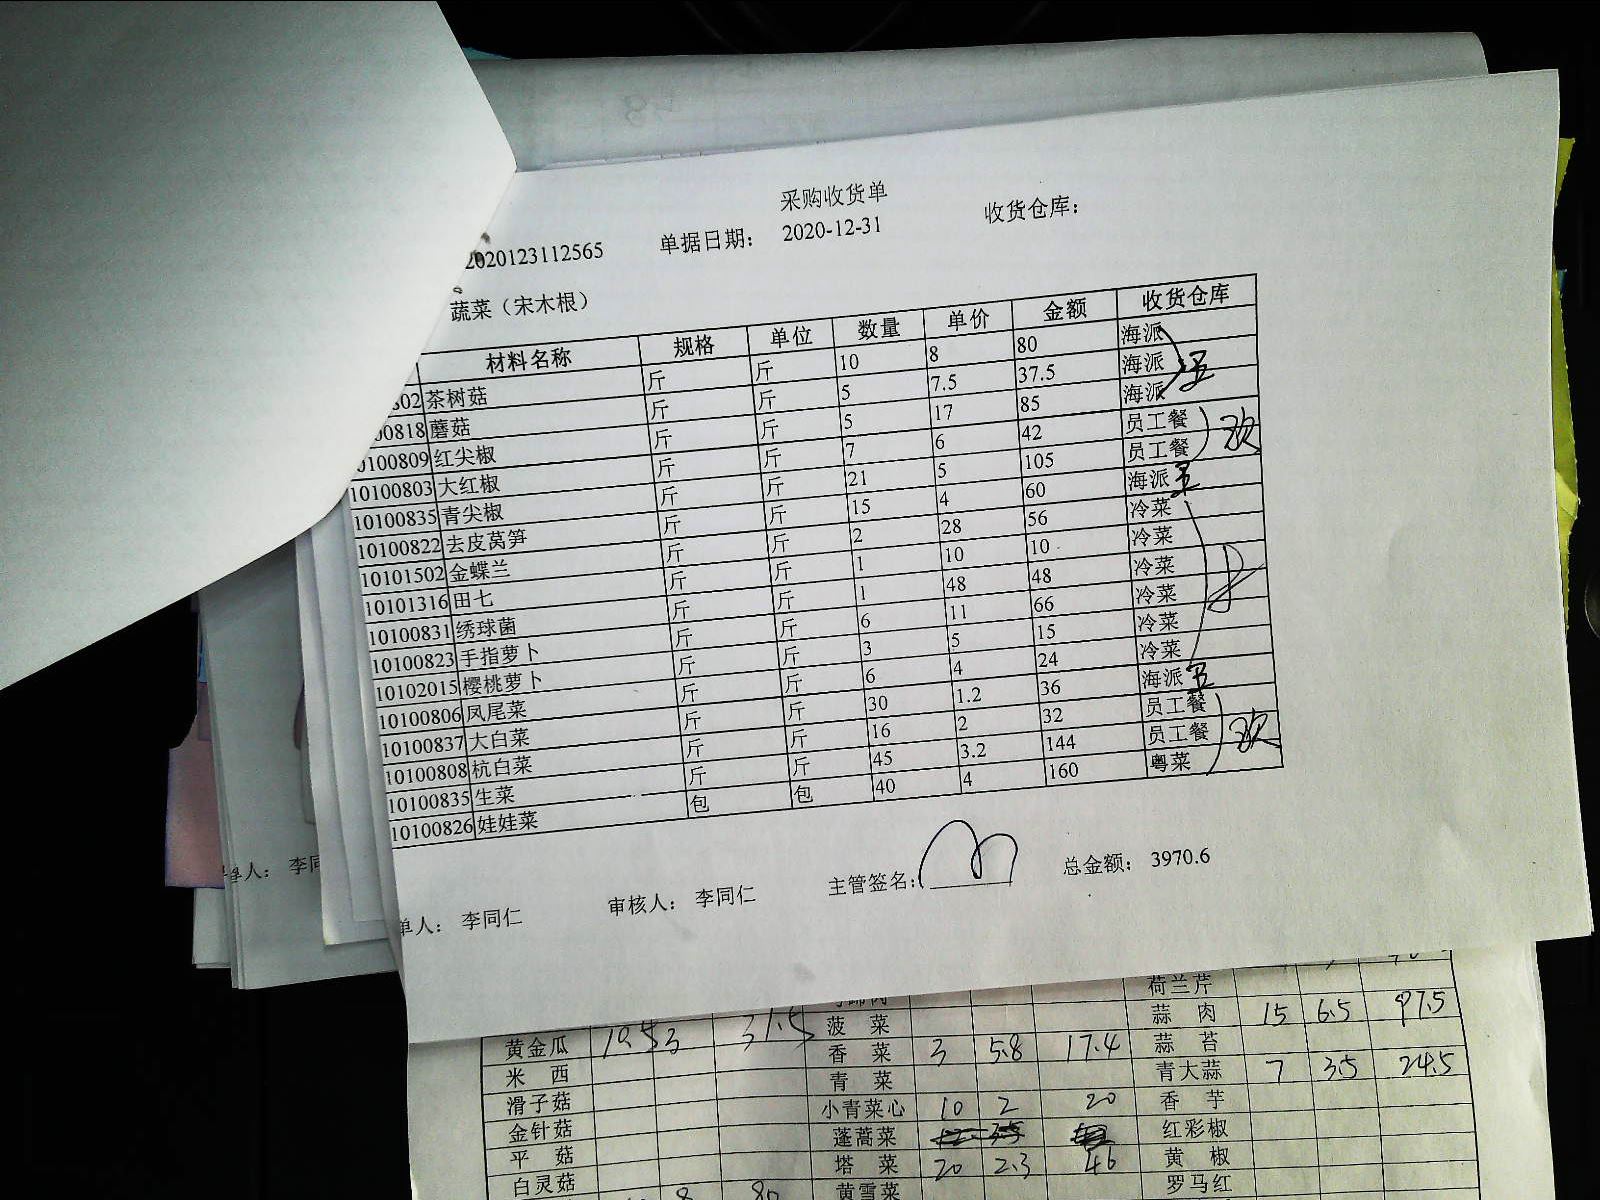 采购收货单
2020123112565 单据日期： 2020-12-31 收货仓库：
蔬菜（宋木根）
材料名称 规格 单位 数量 单价 金额 收货仓库
802 茶树菇 斤 斤 10 8 80 海派
00818 蘑菇 斤 斤 5 7.5 37.5 海派
0100809 红尖椒 斤 斤 5 17 85 海派
10100803 大红椒 斤 斤 7 6 42 员工餐
10100835 青尖椒 斤 斤 21 5 105 员工餐
10100822 去皮莴笋 斤 斤 15 4 60 海派
10101502 金蝶兰 斤 斤 2 28 56 冷菜
10101316 田七 斤 斤 1 10 10 冷菜
10100831 绣球菌 斤 斤 1 48 48 冷菜
10100823 手指萝卜 斤 斤 6 11 66 冷菜
10102015 樱桃萝卜 斤 斤 3 5 15 冷菜
10100806 凤尾菜 斤 斤 6 4 24 冷菜
10100837 大白菜 斤 斤 30 1.2 36 海派
10100808 杭白菜 斤 斤 16 2 32 员工餐
10100835 生菜 斤 斤 45 3.2 144 员工餐
10100826 娃娃菜 包 包 40 4 160 粤菜
单人： 李同仁 审核人： 李同仁 主管签名： 总金额： 3970.6
单人： 李同
荷兰芹
菠 菜 蒜 肉 15 6.5 97.5
黄金瓜 31.5 香 菜 3 5.8 17.4 蒜 苔
米 西 青 菜 青大蒜 7 3.5 24.5
滑子菇 小青菜心 10 2 20 香 芋
金针菇 蓬蒿菜 红彩椒
平 菇 塔 菜 20 2.3 46 黄 椒
白灵菇 8 80 黄雪菜 罗马红